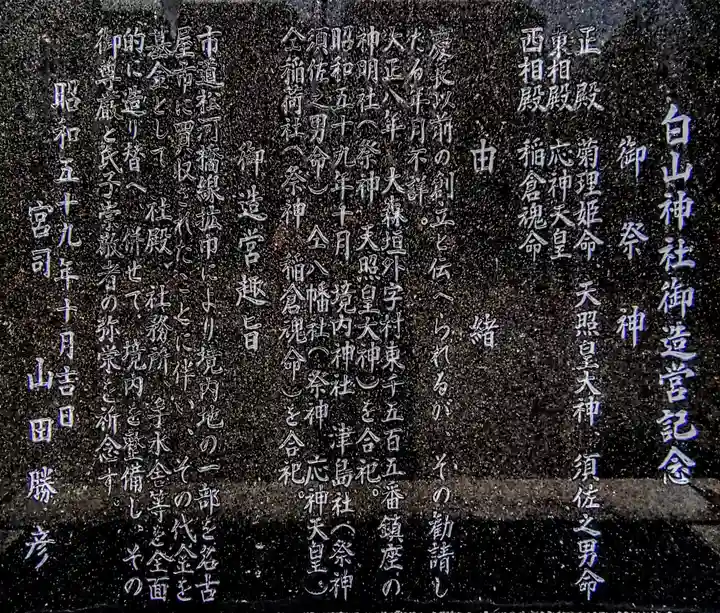 白山神社御造営記念
御祭神
正殿 菊理姫命 天照皇大神 須佐之男命
東相殿 応神天皇
西相殿 稲倉魂命
由緒
慶長以前の創立と伝へられるが、その勧請し
たる年月不詳。
大正八年 大森垣外字村東千五百五番鎮座の
神明社(祭神 天照皇大神)を合祀。
昭和五十九年十月 境内神社 津島社(祭神
須佐之男命)仝八幡社(祭神 応神天皇)
仝稲荷社(祭神 稲倉魂命)を合祀。
御造営趣旨
市道松河橋線拡巾により境内地の一部を名古
屋市に買収されたことに伴い、その代金を
基金として 社殿、社務所、手水舎等を全面
的に造り替へ 併せて、境内を整備し、その
御尊厳と氏子崇敬者の弥栄と祈念す
昭和五十九年十月吉日
宮司 山田勝彦